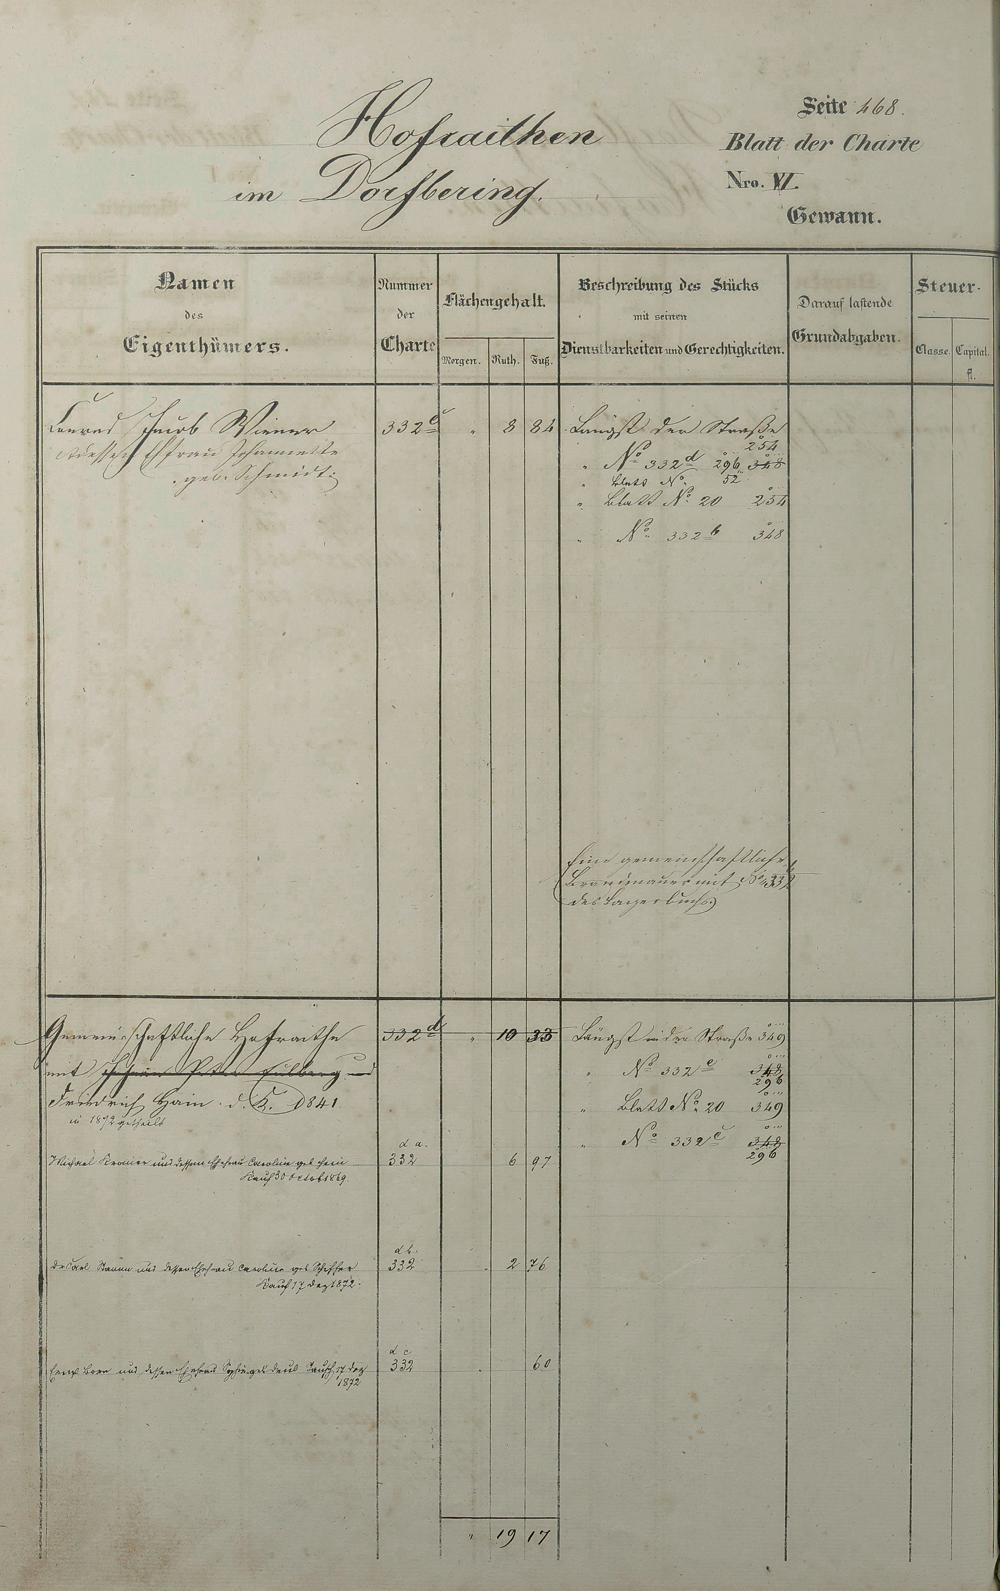 Hofraithen
im Dorfbering.
Seite 468.
Blatt der Charte
Nro. VI.
Gewann.
Namen
des
Eigenthümers.
Nummer
der
Charte
Flächengehalt.
Morgen. Ruth. Fuß.
Beschreibung des Stücks
mit seinen
Dienstbarkeiten und Gerechtigkeiten.
Darauf lastende
Grundabgaben.
Steuer-
Classe. Capital.
fl.
Conrad Jacob Wiener 332c " 8 84 Längst der Straße
dessen Ehefrau Johannette 254
geb. Schmidt. " No 332d 296 348
" Blatt No. 52
" Blatt No. 20 254
" No. 332b 348
Eine gemeinschaftliche
Brandmauer mit No. 332
des Lagerbuchs
Gemeinschaftliche Hofraithe 332d " 10 33 Längst der Straße 349
mit Peter Fulberg und " No 332e 348
296
Friedrich Hain. d. K. 1841 " Blatt No. 20 349
in 1872 getheilt
" No 332c 348
296
Michael Kremer und dessen Ehefrau Caroline geb. Hein 332 da. 6 97
Kauf 30 Octob 1869.
Carl und dessen Ehefrau Caroline geb. Schiffer 332 db. 2 76
Kauf 17 Dez 1872.
und dessen Ehefrau geb. Tausch 17 Dez 332 dc 60
1872
" 19 17